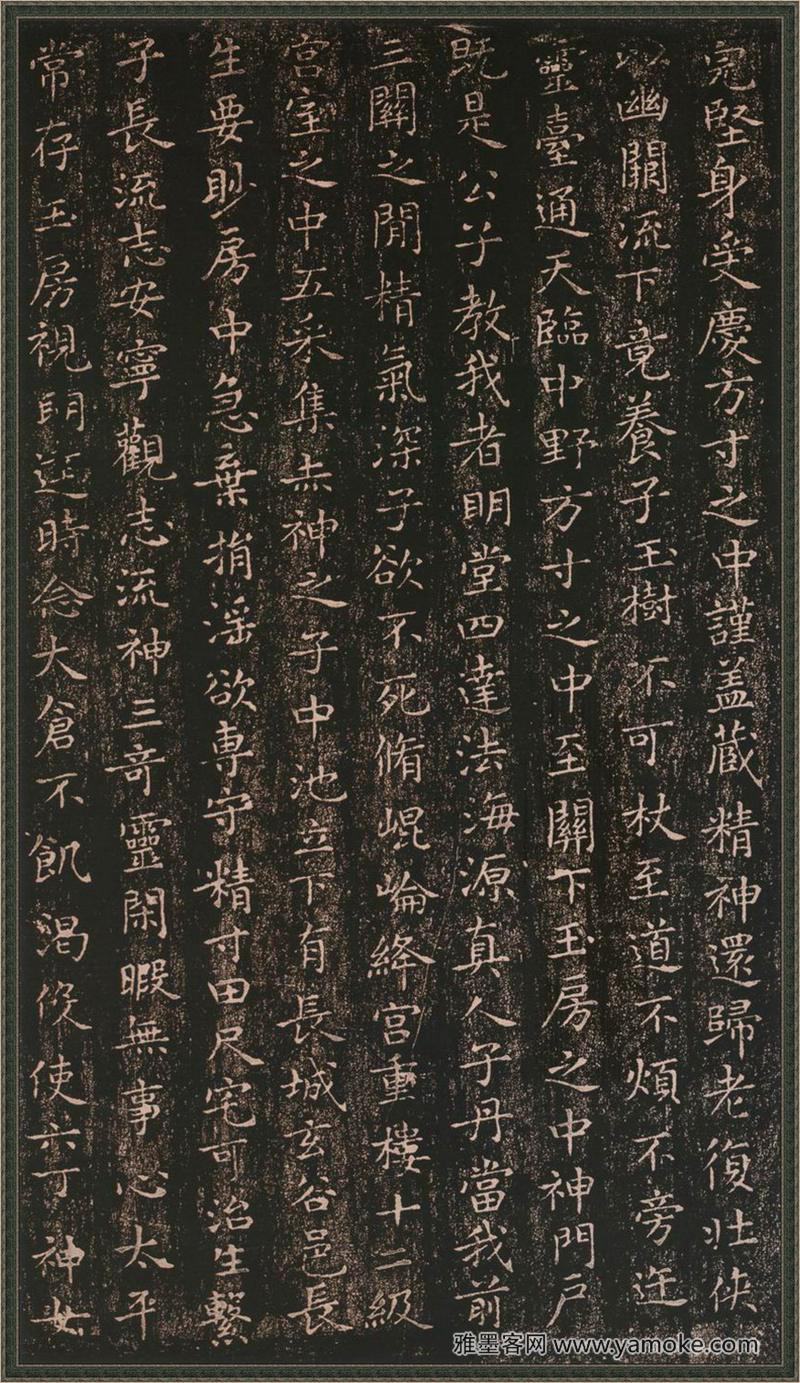 完堅身受慶方寸之中謹盖蔵精神還歸老復壯俠
以幽闕流下竟養子玉樹不可杖至道不煩不旁迕
靈臺通天臨中野方寸之中至關下玉房之中神門戶
既是公子教我者明堂四達法海源真人子丹當我前
三關之閒精氣深子欲不死脩崐崘絳宮重樓十二級
宮室之中五采集赤神之子中池立下有長城玄谷邑長
生要眇房中急棄捐淫欲専守精寸田尺宅可治生繫
子長流志安寧觀志流神三奇靈閑暇無事心太平
常存玉房視明達時念大倉不飢渴役使六丁神女
雅墨客网 www.yamoke.com